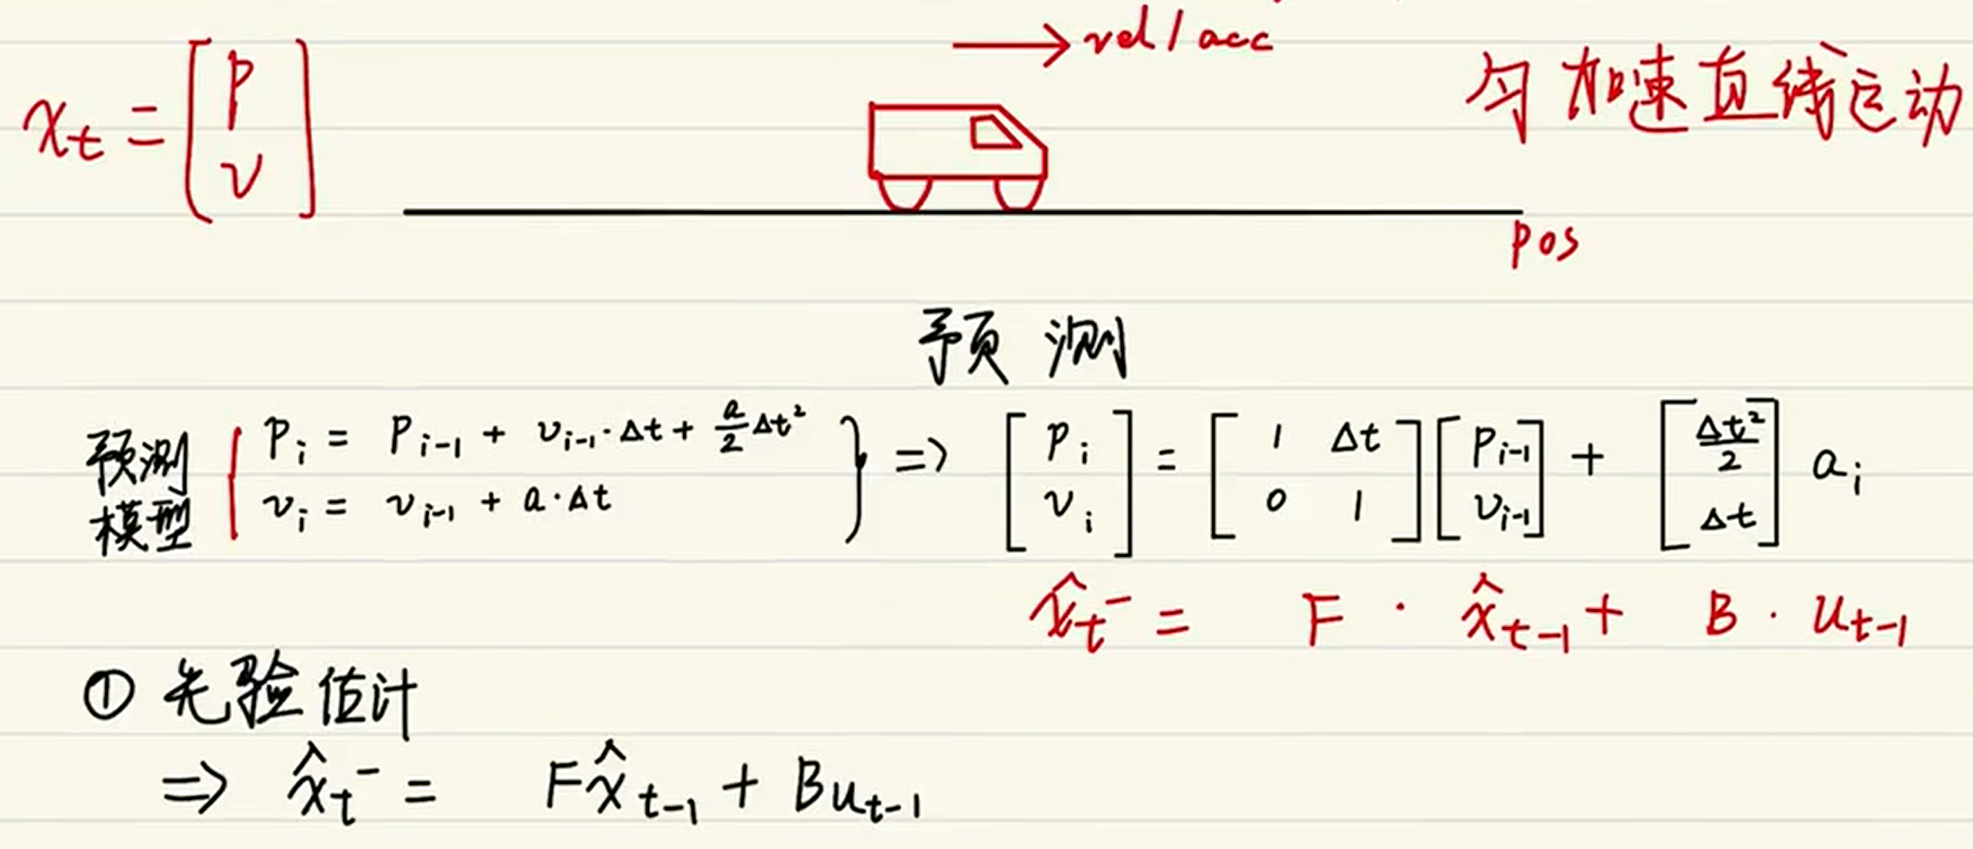 → vel / acc
x_t = [p; v]
匀加速直线运动
pos
预测
预测模型 { p_i = p_{i-1} + v_{i-1}·Δt + \frac{a}{2}Δt²
v_i = v_{i-1} + a·Δt } => [p_i; v_i] = [1 Δt; 0 1] [p_{i-1}; v_{i-1}] + [\frac{Δt²}{2}; Δt] a_i
x̂_t^- = F · x̂_{t-1} + B · u_{t-1}
① 先验估计
=> x̂_t^- = Fx̂_{t-1} + Bu_{t-1}